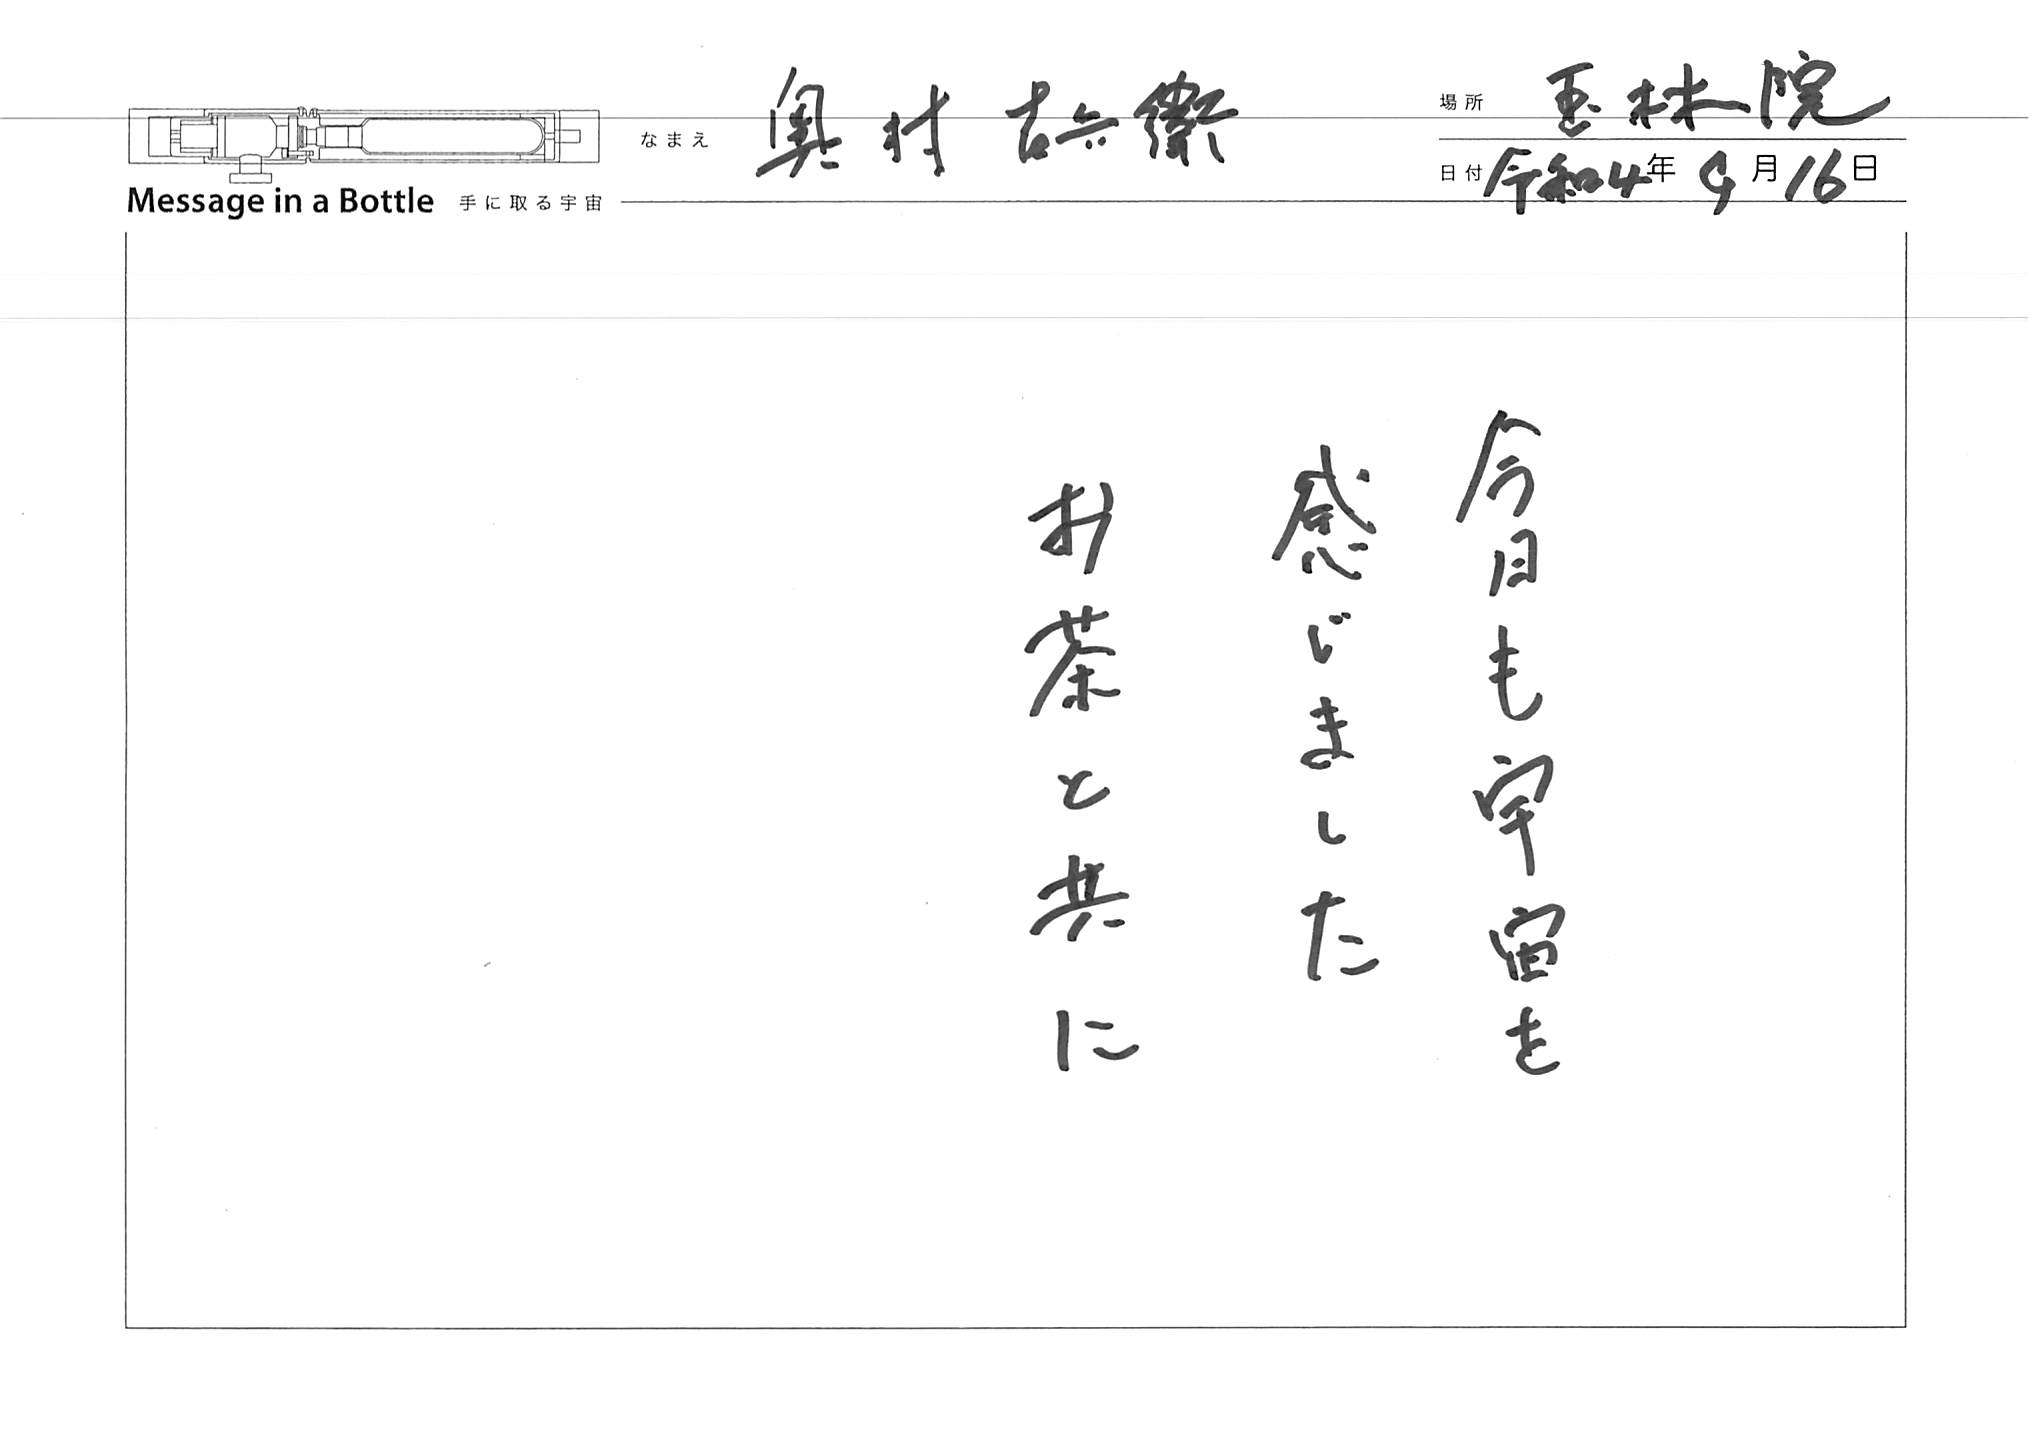 Message in a Bottle 手に取る宇宙
なまえ 奥村吉兵衛
場所 玉林院
日付 令和4年9月16日
今日も宇宙を
感じました
お茶と共に